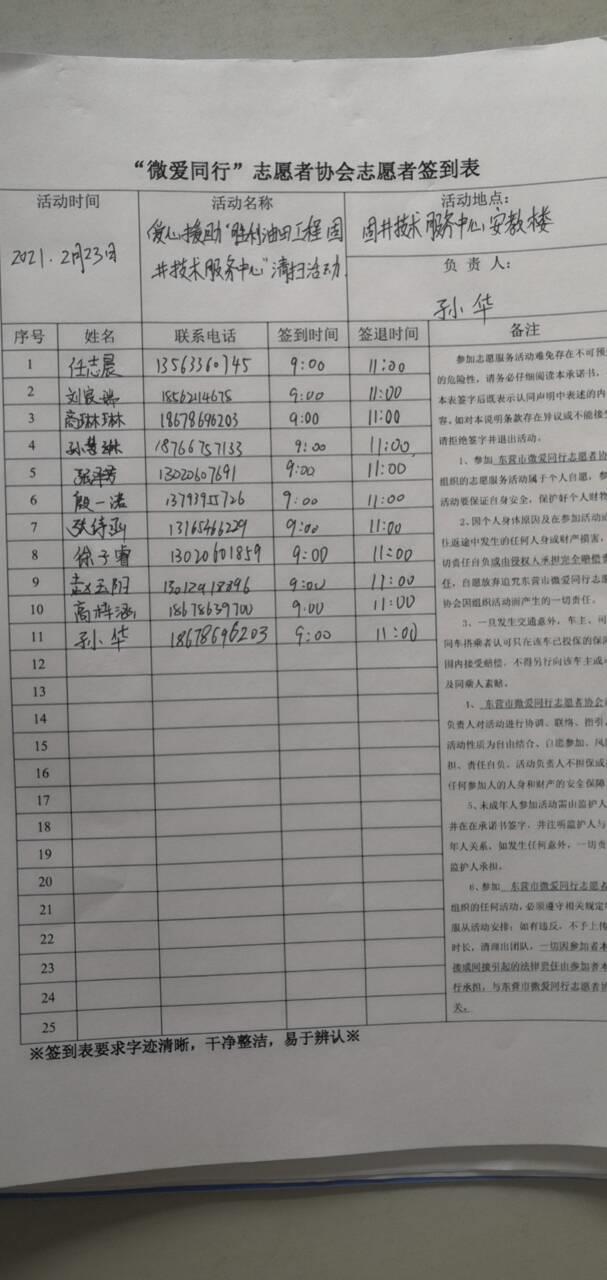 “微爱同行”志愿者协会志愿者签到表
活动时间 活动名称 活动地点：
2021. 2月23日 爱心援助“胜利油田工程固井技术服务中心”清扫活动 固井技术服务中心安教楼
负责人：
孙华
序号 姓名 联系电话 签到时间 签退时间 备注
1 任志晨 13563360745 9:00 11:00
2 刘宸瑞 18562114675 9:00 11:00
3 商琳琳 18678696203 9:00 11:00
4 孙慧琳 18766757133 9:00 11:00
5 13020607691 9:00 11:00
6 殷一诺 9:00 11:00
7 13165466229 9:00 11:00
8 徐子睿 13020601859 9:00 11:00
9 赵玉阳 9:00 11:00
10 高梓涵 18678639700 9:00 11:00
11 孙华 18678696203 9:00 11:00
12
13
14
15
16
17
18
19
20
21
22
23
24
25
参加志愿服务活动难免存在不可预
的危险性，请务必仔细阅读本承诺书，
本表签字后既表示认同声明中表述的内
容。如对本说明条款存在异议或不能接
请拒绝签字并退出活动。
1、参加 东营市微爱同行志愿者协
组织的志愿服务活动属于个人自愿，参
活动要保证自身安全，保护好个人财物
2、因个人身体原因及在参加活动或
往返途中发生的任何人身或财产损害，
切责任自负或由侵权人承担完全赔偿责
任，自愿放弃追究东营市微爱同行志愿
协会因组织活动而产生的一切责任。
3、一旦发生交通意外，车主、司
同车搭乘者认可只在该车已投保的保
围内接受赔偿，不得另行向该车主或
及同乘人索赔。
4、东营市微爱同行志愿者协会
负责人对活动进行协调、联络、指引，
活动性质为自由结合、自愿参加、风
担、责任自负。活动负责人不担保或
任何参加人的人身和财产的安全保障
5、未成年人参加活动需由监护人
并在在承诺书签字，并注明监护人与
年人关系，如发生任何意外，一切责
监护人承担。
6、参加 东营市微爱同行志愿者
组织的任何活动，必须遵守相关规定
服从活动安排；如有违反，不予上传
时长，清理出团队，一切因参加者本
接或间接引起的法律责任由参加者本
行承担，与东营市微爱同行志愿者协
关。
※签到表要求字迹清晰，干净整洁，易于辨认※